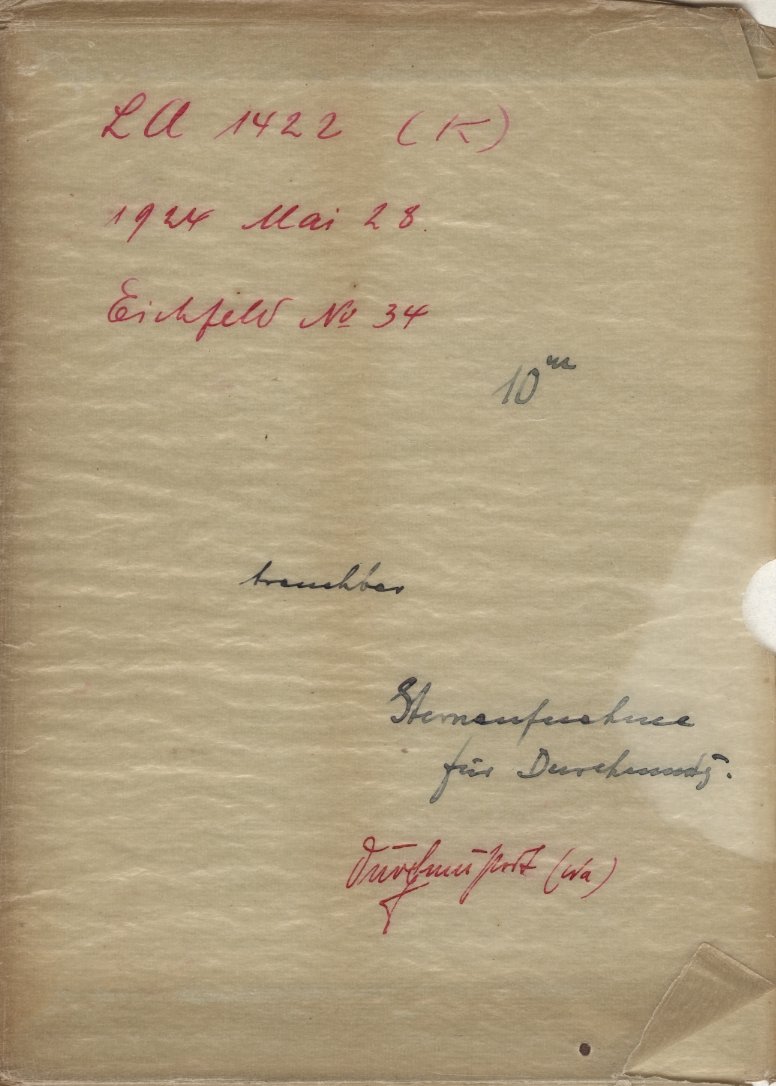 LA 1422 (K)
1924 Mai 28.
Eichfeld No 34
10m
brauchbar
Sternaufnahme
für Durchmustg.
Durchmustert (Wa)